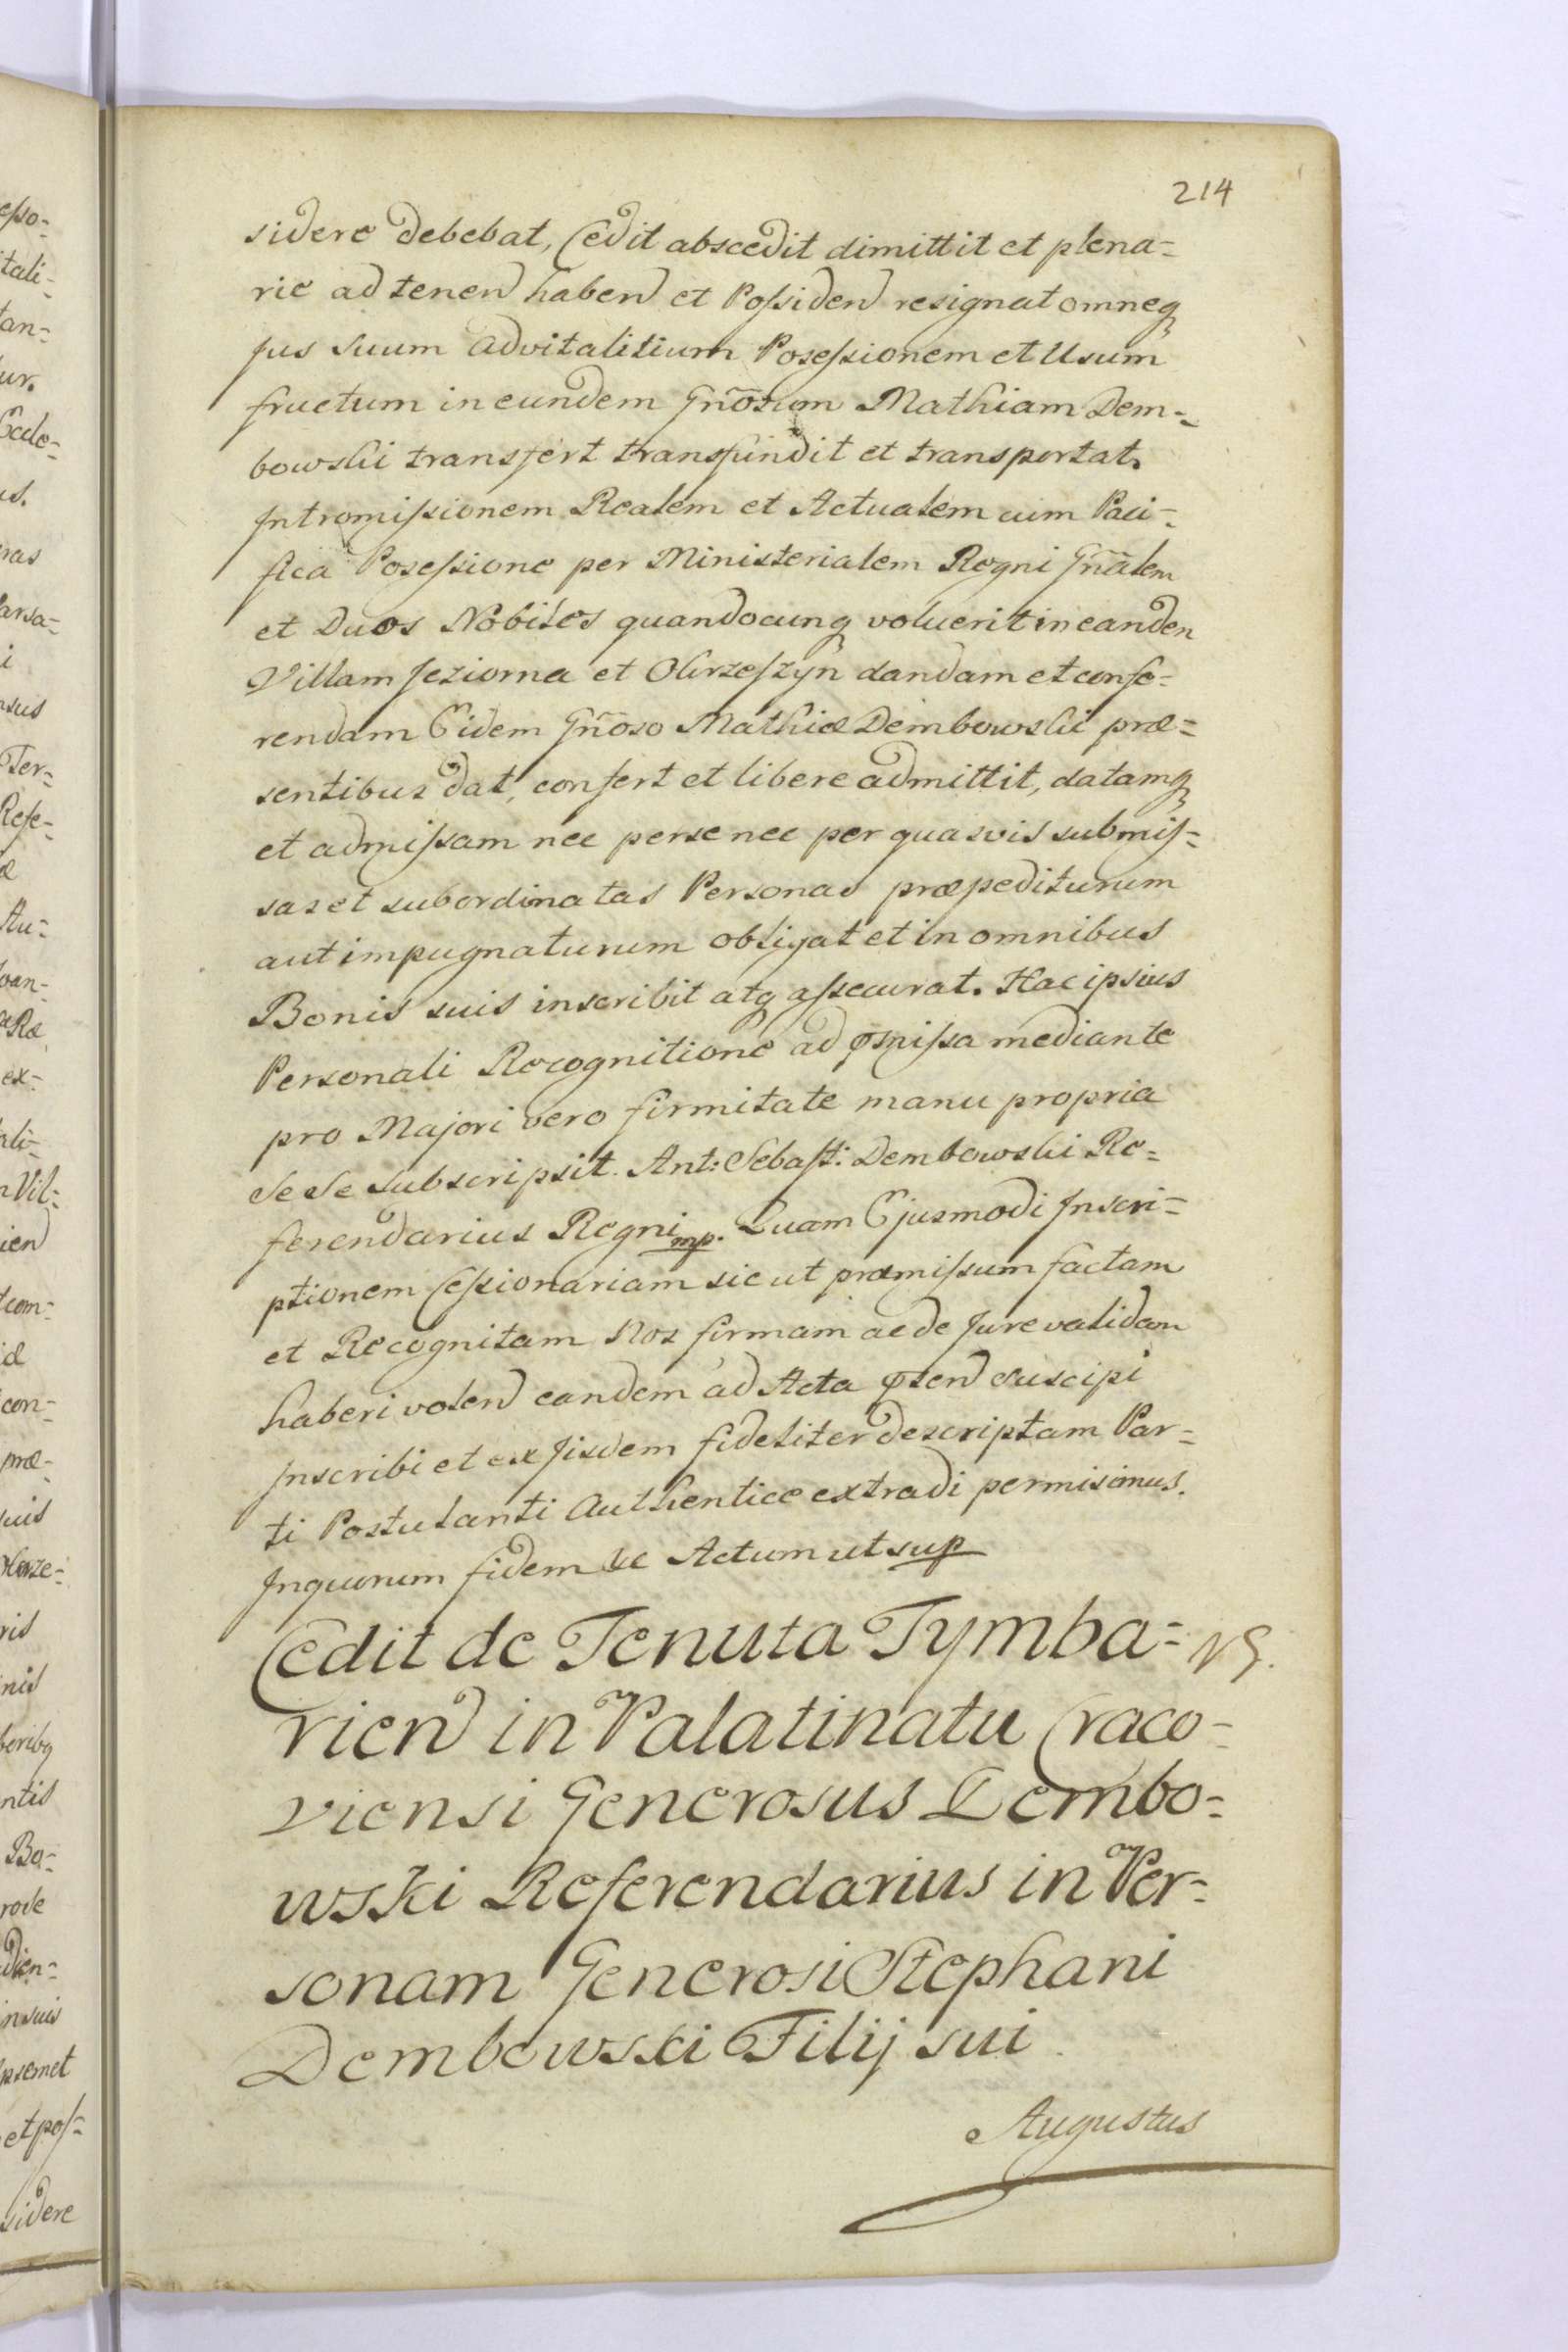 214
sidere debebat, Cedit abscedit dimittit et plena=
rie ad tenen haben et Possiden resignat omneq
Jus suum advitalitium Posessionem et Usum
fructum in eundem Gñosum Mathiam Dem=
bowski transfert transfundit et transportat.
Intromissionem Realem et Actualem cum Paci=
fica Posessione per Ministerialem Regni Gñalem
et Duos Nobiles quandocunq voluerit in eanden
Villam Jeziorna et Obrzeszyn dandam et confe=
rendam Eidem Gñoso Mathiæ Dembowski præ=
sentibus dat, confert et libere admittit, datamq
et admissam nec perse nec per quasvis submis=
sas et subordinatas Personas præpediturum
aut impugnaturum obligat et in omnibus
Bonis suis inscribit atq assecurat. Hac ipsius
Personali Recognitione ad pmissa mediante
pro Majori vero firmitate manu propria
Se Se subscripsit. Ant: Sebast: Dembowski Re=
ferendarius Regni mp. Quam Ejusmodi Inscri=
ptionem Cessionariam sic ut præmissum factam
et Recognitam Nos firmam ac de Jure validam
haberi volen eandem ad Acta psen suscipi
Inscribi et ex Jisdem fideliter descriptam Par=
ti Postulanti Authentice extradi permisimus.
Inquorum fidem &c Actum ut sup
Cedit de Tenuta Tymba=
rien in Palatinatu Craco=
viensi Generosus Dembo=
wski Referendarius in Per=
sonam Generosi Stephani
Dembowski Filij sui.
Augustus
epo=
itali=
tan=
ur.
Eccle=
us.
ras
arsa=
i
nsus
Ter=
Refe=
æ
Au=
oan=
ex=
ali=
Vil=
ien
com=
æ
con=
præ=
suis
ris
nis
beribq
ntis
Bo=
rode
dien=
in suis
psemet
et pos=
sidere